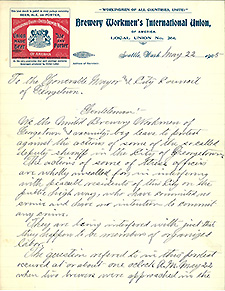 "WORKINGMEN OF ALL COUNTRIES, UNITE!"
Brewery Workmen's International Union,
OF AMERICA.
LOCAL UNION No.
Seattle, Wash May 22
To the Honorable Mayor & City Council
of Georgetown.
Gentlemen:
We the United Brewery Workmen of
Georgetown & vicinity beg leave to protest
against the actions of some of the so called
deputy sheriffs in the City of Georgetown.
The actions of some of these officers
are wholly uncalled for in interfering
with peaceful residents of this City on the
public highway who have committed no
and have no intention to commit
any crime.
They are being interfered with just that
they happen to be members of organized
Labor.
The question referred to in this protest
occurred at about one o'clock A.M. May 22
when two brewers were approached in the